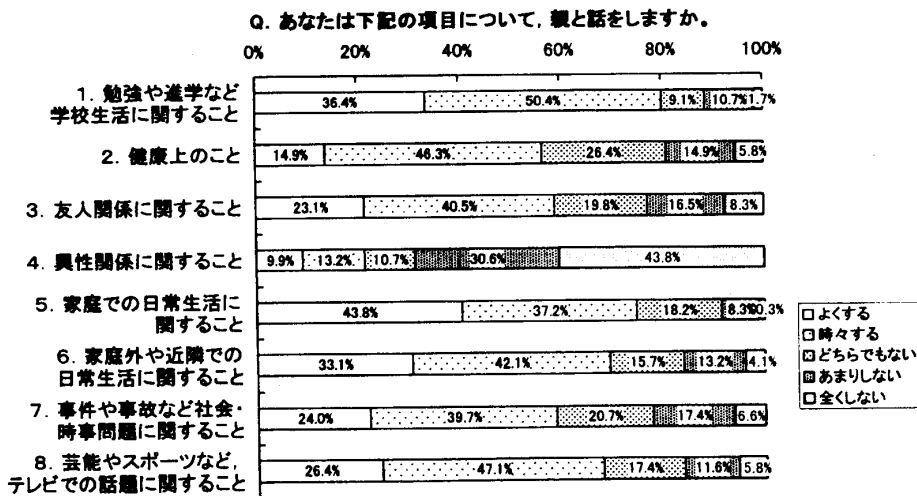 Q. あなたは下記の項目について,親と話をしますか。
0% 20% 40% 60% 80% 100%
1. 勉強や進学など
学校生活に関すること
36.4% 50.4% 9.1% 10.7% 1.7%
2. 健康上のこと
14.9% 46.3% 26.4% 14.9% 5.8%
3. 友人関係に関すること
23.1% 40.5% 19.8% 16.5% 8.3%
4. 異性関係に関すること
9.9% 13.2% 10.7% 30.6% 43.8%
5. 家庭での日常生活に
関すること
43.8% 37.2% 18.2% 8.3%
6. 家庭外や近隣での
日常生活に関すること
33.1% 42.1% 15.7% 13.2% 4.1%
7. 事件や事故など社会・
時事問題に関すること
24.0% 39.7% 20.7% 17.4% 6.6%
8. 芸能やスポーツなど,
テレビでの話題に関すること
26.4% 47.1% 17.4% 11.6% 5.8%
よくする
時々する
どちらでもない
あまりしない
全くしない